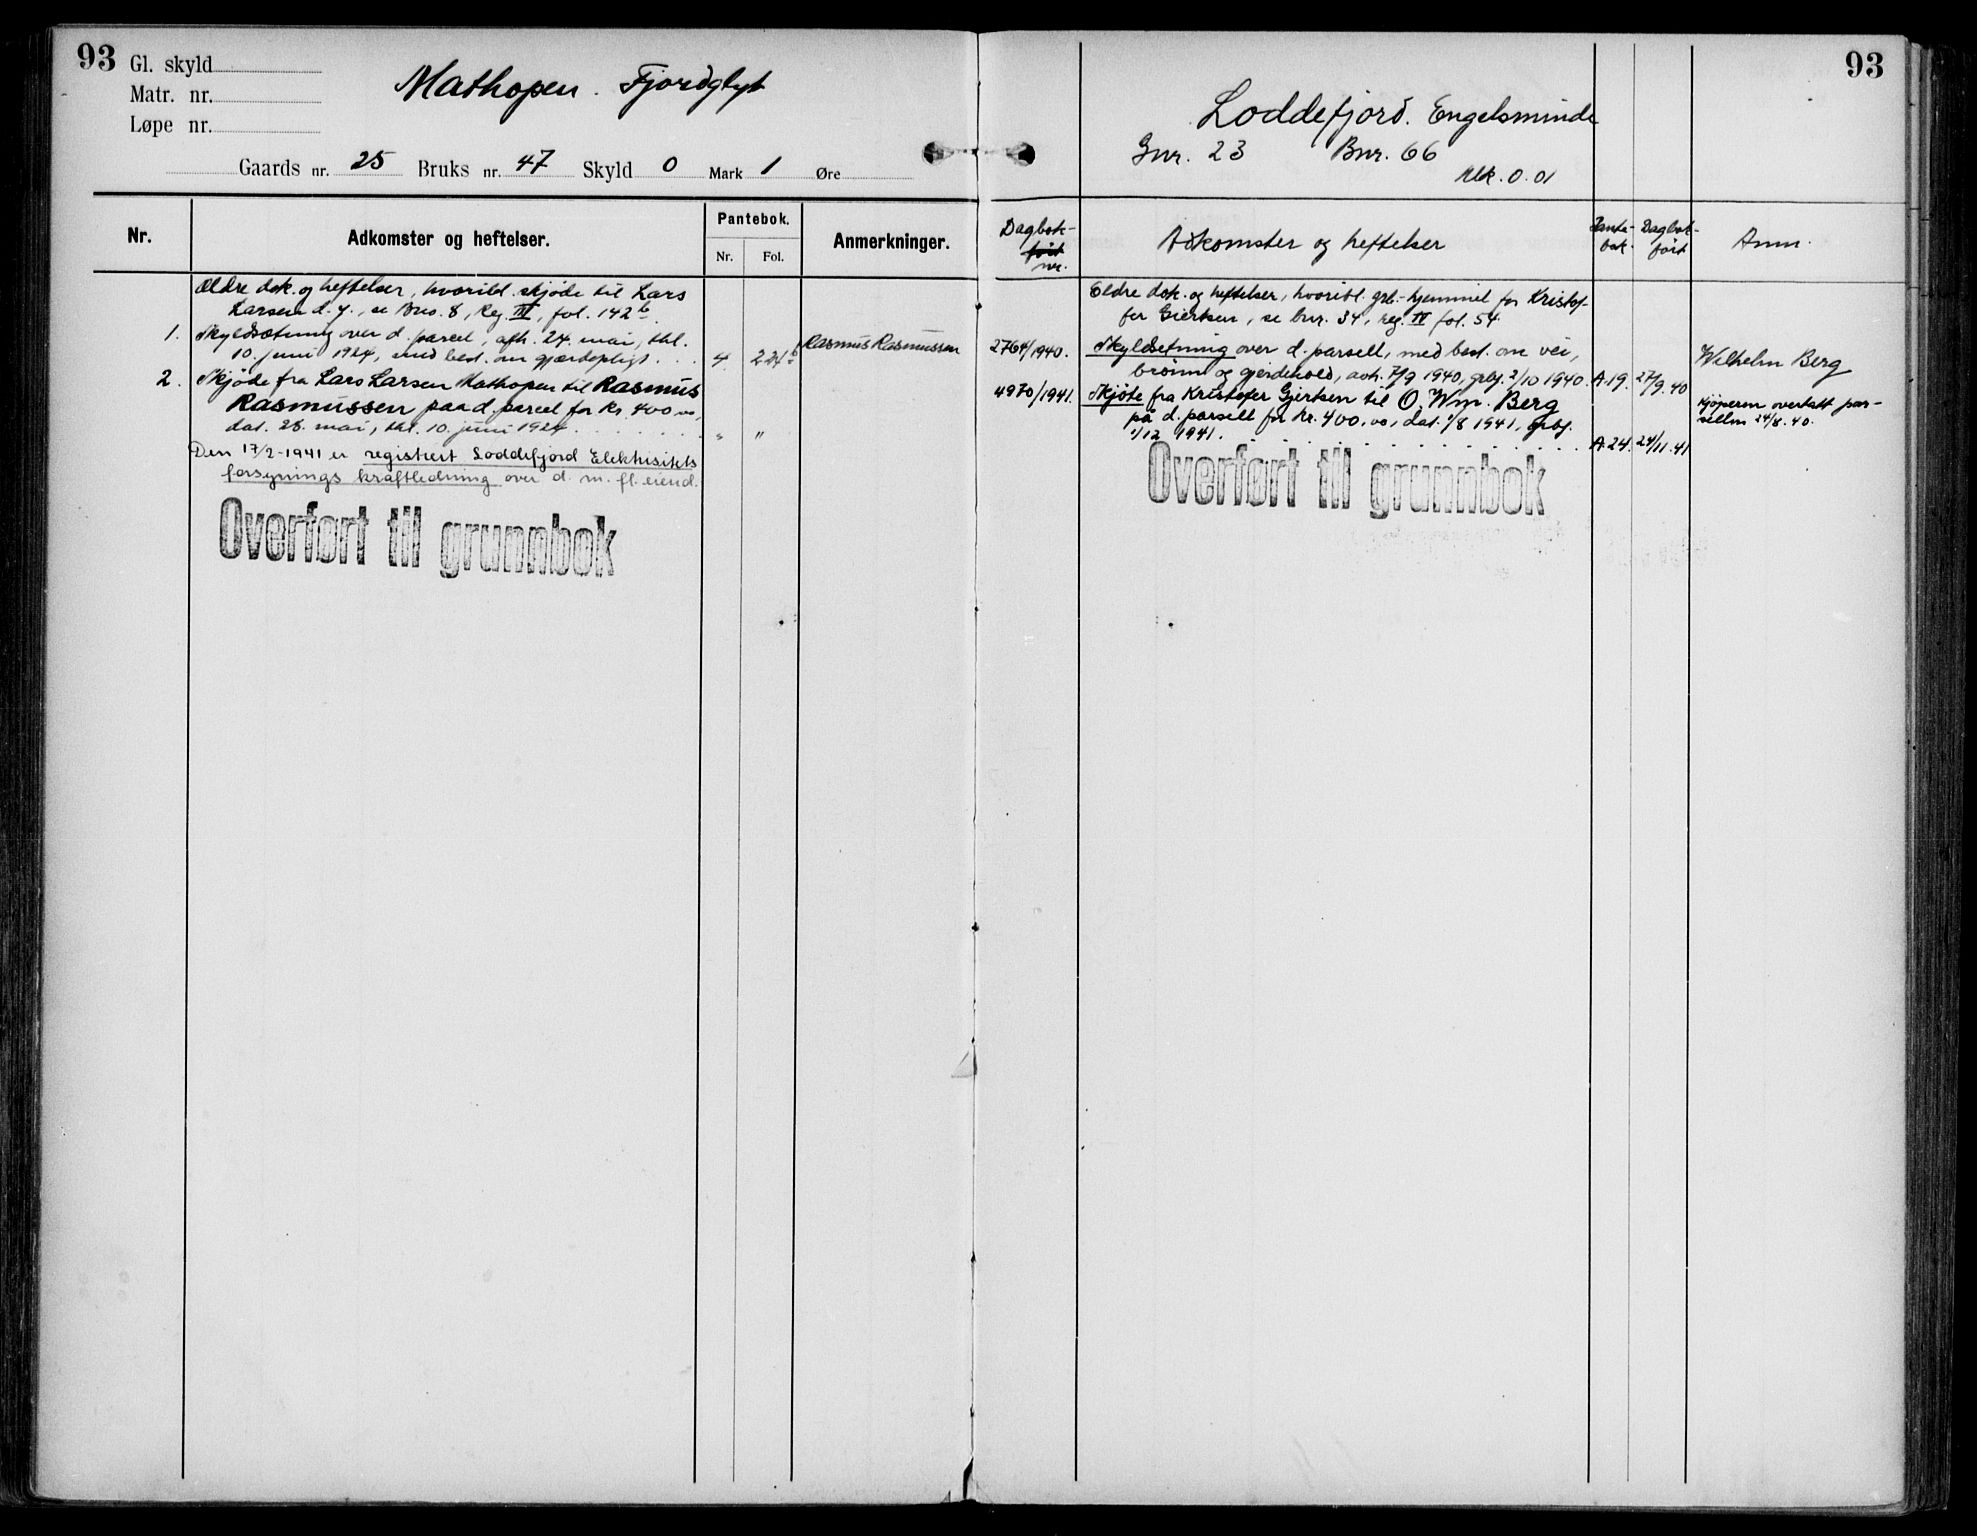 93
Gl. skyld
Matr. nr.
Løpe nr.
Mathopen. Fjordglyt
Gaards nr. 25 Bruks nr. 47 Skyld 0 Mark 1 Øre
Nr.
Adkomster og heftelser.
Pantebok.
Nr. Fol.
Anmerkninger.
Ældre dok. og heftelser, hvoribl. skjøde til Lars
Larsen d. y., se Bno. 8, Reg. III, fol. 142 b.
1. Skyldsætning over d. parcel, afh. 24. mai, thl.
10. juni 1924, med best. om gjærdepligt. . . 4 224 b Rasmus Rasmussen
2. Skjøde fra Lars Larsen Mathopen til Rasmus
Rasmussen paa d. parcel for kr. 400,00,
dat. 28. mai, thl. 10. juni 1924. . . . . . . . . " "
Den 17/2-1941 er registrert Loddefjord Elektrisitets
forsynings kraftledning over d. m. fl. eiend.
Overført til grunnbok
93
Loddefjord. Engelsminde
Gnr. 23 Bnr. 66
Mk. 0.01
Dagbok-
ført
nr.
Adkomster og heftelser
Pante-
bok.
Dagbok-
ført
Anm.
Eldre dok. og heftelser, hvoribl. grb.-hjemmel for Kristof-
fer Gjertsen, se bnr. 34, reg. II fol. 54.
2764/1940. Skyldsetning over d. parsell, med best. om vei,
brønn og gjerdehold, avh. 7/9 1940, grbf. 2/10 1940. A.19. 27/9.40 Wilhelm Berg
4970/1941. Skjøte fra Kristofer Gjertsen til O. Wm. Berg
på d. parsell for kr. 400,00, dat. 1/8 1941, grbf.
1/12 1941. . . . . . . . . . . . . . . A.24. 24/11.41
Kjøperen overtatt par-
sellen 24/8.40.
Overført til grunnbok